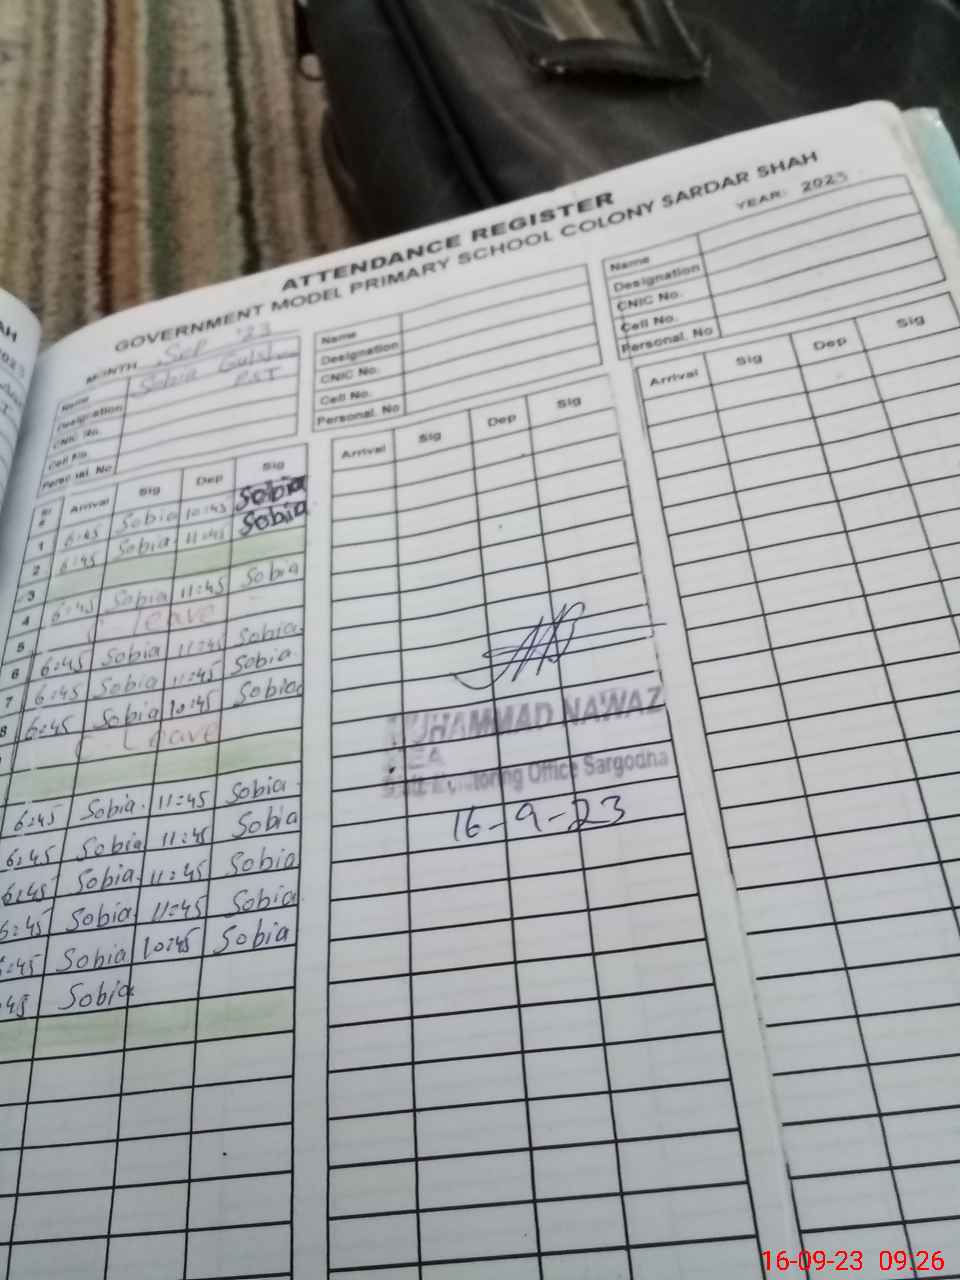 ATTENDANCE REGISTER
GOVERNMENT MODEL PRIMARY SCHOOL COLONY SARDAR SHAH
MONTH Sep '23
YEAR: 2023
Name Sobia
Designation PST
CNIC No.
Cell No.
Personal No
Name
Designation
CNIC No.
Cell No.
Personal. No
Name
Designation
CNIC No.
Cell No.
Personal. No
Arrival Sig Dep Sig
Arrival Sig Dep Sig
Arrival Sig Dep Sig
1 6:45 Sobia 10:45 Sobia
2 6:45 Sobia 11:45 Sobia
3
4 6:45 Sobia 11:45 Sobia
5 C. Leave
6 6:45 Sobia 11:45 Sobia
7 6:45 Sobia 11:45 Sobia
8 6:45 Sobia 10:45 Sobia
C. Leave
6:45 Sobia 11:45 Sobia
6:45 Sobia 11:45 Sobia
6:45 Sobia 11:45 Sobia
6:45 Sobia 11:45 Sobia
:45 Sobia 10:45 Sobia
45 Sobia
MUHAMMAD NAWAZ
Monitoring Office Sargodha
16-9-23
16-09-23 09:26